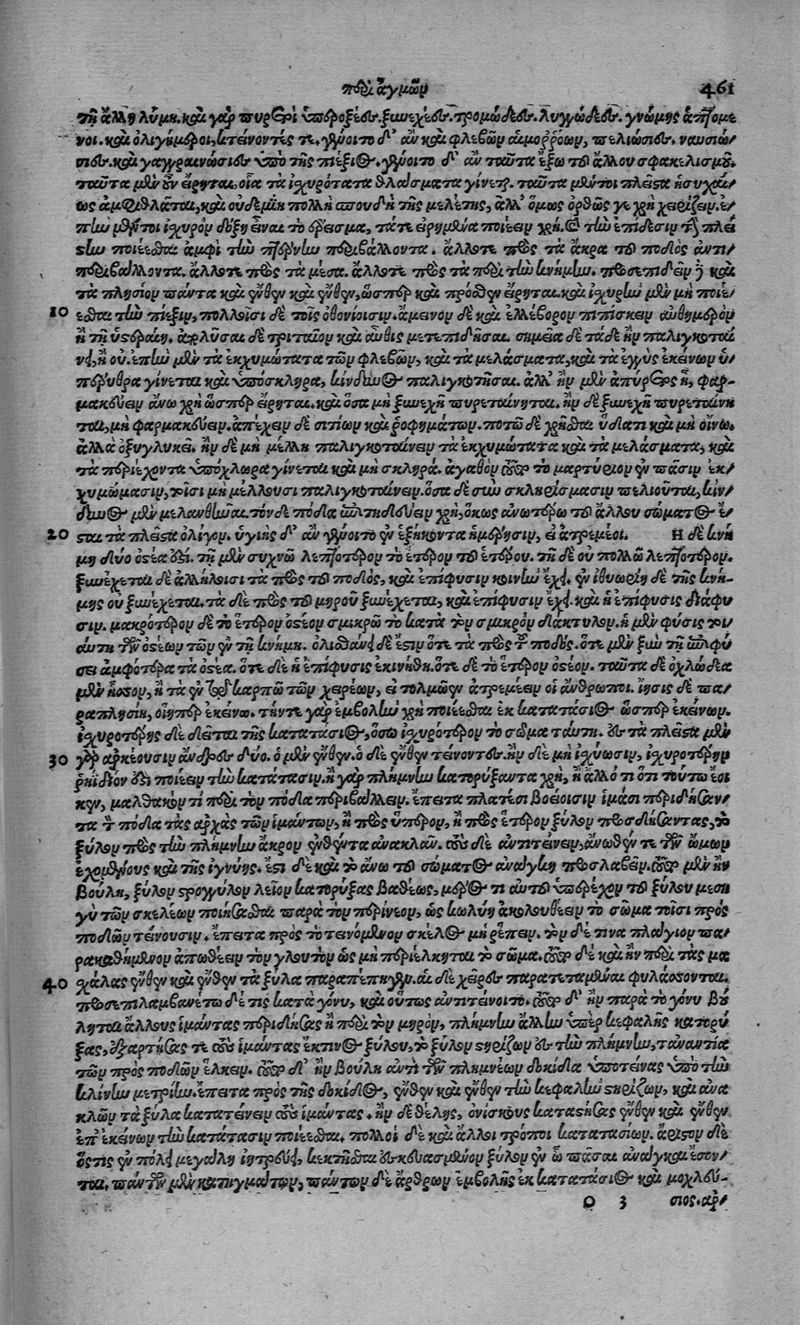 περὶ ἀγμῶν 461
τῇ ἄλλῃ λύμῃ. καὶ γὰρ πυρετοὶ ὑπεροξέες. ξυνεχέες. τρομώδεες. λυγγώδεες. γνώμης ἁπτόμε
νοι. καὶ ὀλιγήμεροι, κτείνοντές τε. γένοιτο δ' ἂν καὶ φλεβῶν αἱμορρόων, πελιώσιες. ναυσιώ/
σιες. καὶ γαγγραινώσιες ὑπὸ τῆς πιέξιος. γένοιτο δ' ἂν ταῦτα ἔξω τοῦ ἄλλου σφακελισμοῦ.
ταῦτα μὲν οὖν εἴρηται, οἷα τὰ ἰσχυρότατα φλάσματα γίνεται. ταῦτα μέντοι πλεῖστα ἡσυχαί/
ως ἀμφιθλᾶται, καὶ οὐδεμίη πολλὴ σπουδὴ τῆς μελέτης, ἀλλ' ὅμως ὀρθῶς γε χρὴ χειρίζειν. ἐ/
πὴν μέντοι ἰσχυρὸν δόξῃ εἶναι τὸ ἔρεισμα, τά τε εἰρημένα ποιέειν χρὴ. καὶ τὴν ἐπίδεσιν τὴν πλεί
στην ποιέεσθαι ἀμφὶ τὴν πτέρνην περιβάλλοντα. ἄλλοτε πρὸς τὰ ἄκρα τοῦ ποδὸς ἀντι/
περιβάλλοντα. ἄλλοτε πρὸς τὰ μέσα. ἄλλοτε πρὸς τὰ περὶ τὴν κνήμην. προσεπιδεῖν δὲ καὶ
τὰ πλησίον πάντα καὶ ἔνθεν καὶ ἔνθεν, ὥσπερ καὶ πρόσθεν εἴρηται. καὶ ἰσχυρὴν μὲν μὴ ποιέ/
10 εσθαι τὴν πίεξιν, πολλοῖσι δὲ τοῖς ὀθονίοισιν. ἄμεινον δὲ καὶ ἐλλέβορον πιπίσκειν αὐθημερὸν
ἢ τῇ ὑστεραίῃ. ἀπολῦσαι δὲ τριταῖον καὶ αὖθις μετεπιδῆσαι. σημεῖα δὲ τάδε ἢν παλιγκοταί
νῃ, ἢ οὔ. ἐπὴν μὲν τὰ ἐκχυμώματα τῶν φλεβῶν, καὶ τὰ μελάσματα, καὶ τὰ ἐγγὺς ἐκείνων ὑ/
πέρυθρα γίνεται καὶ ὑπόσκληρα, κίνδυνος παλιγκοτῆσαι. ἀλλ' ἢν μὲν ἀπύρετος ᾖ, φαρ-
μακεύειν ἄνω χρὴ ὥσπερ εἴρηται. καὶ ὅσα μὴ ξυνεχῆ πυρεταίνηται. ἢν δὲ ξυνεχῆ πυρεταίνη
ται, μὴ φαρμακεύειν. ἀπέχειν δὲ σιτίων καὶ ῥοφημάτων. ποτῷ δὲ χρῆσθαι ὕδατι καὶ μὴ οἴνῳ.
ἀλλὰ ὀξυγλυκεῖ. ἢν δὲ μὴ μέλλῃ παλιγκοταίνειν τὰ ἐκχυμώματα καὶ τὰ μελάσματα, καὶ
τὰ περιέχοντα ὑπόχλωρα γίνεται καὶ μὴ σκληρά. ἀγαθὸν τοῦτο τὸ μαρτύριον ἐν πᾶσιν ἐκ/
χυμώμασιν, τοῖσι μὴ μέλλουσι παλιγκοταίνειν. ὅσα δὲ σὺν σκληρίσμασιν πελιοῦται, κίν/
δυνος μὲν μελανθῆναι. τὸν δὲ πόδα ἐπιτηδεύειν χρὴ, ὅκως ἀνωτέρω τοῦ ἄλλου σώματος ἔ/
20 σται τὰ πλεῖστα ὀλίγον. ὑγιὴς δ' ἂν γένοιτο ἐν ἑξήκοντα ἡμέρῃσιν, εἰ ἀτρεμέοι. Ἡ δὲ κνή
μη δύο ὀστέα ἐστί. τῇ μὲν συχνῷ λεπτότερον τὸ ἕτερον τοῦ ἑτέρου. τῇ δὲ οὐ πολλῷ λεπτότερον.
ξυνέχεται δὲ ἀλλήλοισι τὰ πρὸς τοῦ ποδὸς, καὶ ἐπίφυσιν κοινὴν ἔχει. ἐν ἰθυωρίῃ δὲ τῆς κνή-
μης οὐ ξυνέχεται. τὰ δὲ πρὸς τοῦ μηροῦ ξυνέχεται, καὶ ἐπίφυσιν ἔχει. καὶ ἡ ἐπίφυσις διάφυ
σιν. μακρότερον δὲ τὸ ἕτερον ὀστέον σμικρῷ τὸ κατὰ τὸν σμικρὸν δάκτυλον. ἡ μὲν φύσις τοι/
αύτη τῶν ὀστέων τῶν ἐν τῇ κνήμῃ. ὀλισθάνει δὲ ἔστιν ὅτε τὰ πρὸς τοῦ ποδός. ὁτὲ μὲν ξὺν τῇ ἐπιφύ
σει ἀμφότερα τὰ ὀστέα. ὁτὲ δὲ ἡ ἐπίφυσις ἐκινήθη. ὁτὲ δὲ τὸ ἕτερον ὀστέον. ταῦτα δὲ ὀχλώδεα
μὲν ἧσσον, ἢ τὰ ἐν τῷ καρπῷ τῶν χειρέων, εἰ τολμῷεν ἀτρεμέειν οἱ ἄνθρωποι. ἴησις δὲ πα/
ραπλησίη, οἵηπερ ἐκείνων. τήν τε γὰρ ἐμβολὴν χρὴ ποιέεσθαι ἐκ κατατάσιος ὥσπερ ἐκείνων.
ἰσχυροτέρης δὲ δεῖται τῆς κατατάσιος, ὅσῳ ἰσχυρότερον τὸ σῶμα ταύτῃ. ἐς τὰ πλεῖστα μὲν
30 γὰρ ἀρκέουσιν ἄνδρες δύο. ὁ μὲν ἔνθεν. ὁ δὲ ἔνθεν τείνοντες. ἢν δὲ μὴ ἰσχύωσιν, ἰσχυροτέρην
ῥηΐδιόν ἐστι ποιέειν τὴν κατάτασιν. ἢ γὰρ πλήμνην κατορύξαντα χρὴ, ἢ ἄλλό τι ὅτι τούτῳ ἔοι
κεν, μαλθακόν τι περὶ τὸν πόδα περιβάλλειν. ἔπειτα πλατέσι βοείοισιν ἱμᾶσι περιδήσαν/
τα τὸν πόδα τὰς ἀρχὰς τῶν ἱμάντων, ἢ πρὸς ὕπερον, ἢ πρὸς ἕτερον ξύλον προσδήσαντας, τὸ
ξύλον πρὸς τὴν πλήμνην ἄκρον ἐνθέντα ἀνακλᾶν. τοὺς δὲ ἀντιτείνειν, ἄνωθέν τε τῶν ὤμων
ἐχομένους καὶ τῆς ἰγνύης. ἔστι δὲ καὶ τὸ ἄνω τοῦ σώματος ἀνάγκῃ προσλαβεῖν. τοῦτο μὲν ἢν
βούλῃ, ξύλον στρογγύλον λεῖον κατορύξας βαθέως, μέρος τι αὐτοῦ ὑπερέχον τοῦ ξύλου μεση
γὺ τῶν σκελέων ποιήσασθαι παρὰ τὸν περίνεον, ὡς κωλύῃ ἀκολουθέειν τὸ σῶμα τοῖσι πρὸς
ποδῶν τείνουσιν. ἔπειτα πρὸς τὸ τεινόμενον σκέλος μὴ ῥέπειν. τὸν δέ τινα πλάγιον πα/
ρακαθήμενον ἀπωθέειν τὸν γλουτὸν ὡς μὴ περιέλκηται τὸ σῶμα. τοῦτο δὲ καὶ ἢν περὶ τὰς μα
40 χάλας ἔνθεν καὶ ἔνθεν τὰ ξύλα παραπεπήγῃ. αἱ δὲ χεῖρες παρατεταμέναι φυλάσσονται.
προσεπιλαμβανέτω δέ τις κατὰ γόνυ, καὶ οὕτως ἀντιτείνοιτο. τοῦτο δ' ἢν παρὰ τὸ γόνυ βού
ληται ἄλλους ἱμάντας περιδήσας ἢ περὶ τὸν μηρὸν, πλήμνην ἄλλην ὑπὲρ κεφαλῆς κατορύ
ξας, ἐξαρτήσας τε τοὺς ἱμάντας ἔκ τινος ξύλου, τὸ ξύλον στηρίζων ἐς τὴν πλήμνην, τἀναντία
τῶν πρὸς ποδῶν ἕλκειν. τοῦτο δ' ἢν βούλῃ ἀντὶ τῶν πλημνέων δοκίδα ὑποτείνας ὑπὸ τὴν
κλίνην μετρίην. ἔπειτα πρὸς τῆς δοκίδος, ἔνθεν καὶ ἔνθεν τὴν κεφαλὴν στηρίζων, καὶ ἀνα
κλῶν τὰ ξύλα κατατείνειν τοὺς ἱμάντας. ἢν δὲ θέλῃς, ὀνίσκους καταστήσας ἔνθεν καὶ ἔνθεν
ἐπ' ἐκείνων τὴν κατάτασιν ποιέεσθαι. πολλοὶ δὲ καὶ ἄλλοι τρόποι κατατασίων. ἄριστον δὲ
ὅστις ἐν πόλει μεγάλῃ ἰητρεύει, κεκτῆσθαι ἐσκευασμένον ξύλον ἐν ᾧ πᾶσαι ἀνάγκαι ἔσον/
ται, πάντων μὲν κατηγμάτων, πάντων δὲ ἄρθρων ἐμβολῆς ἐκ κατατάσιος καὶ μοχλεύ-
Q 3 σιος. ἀρ/